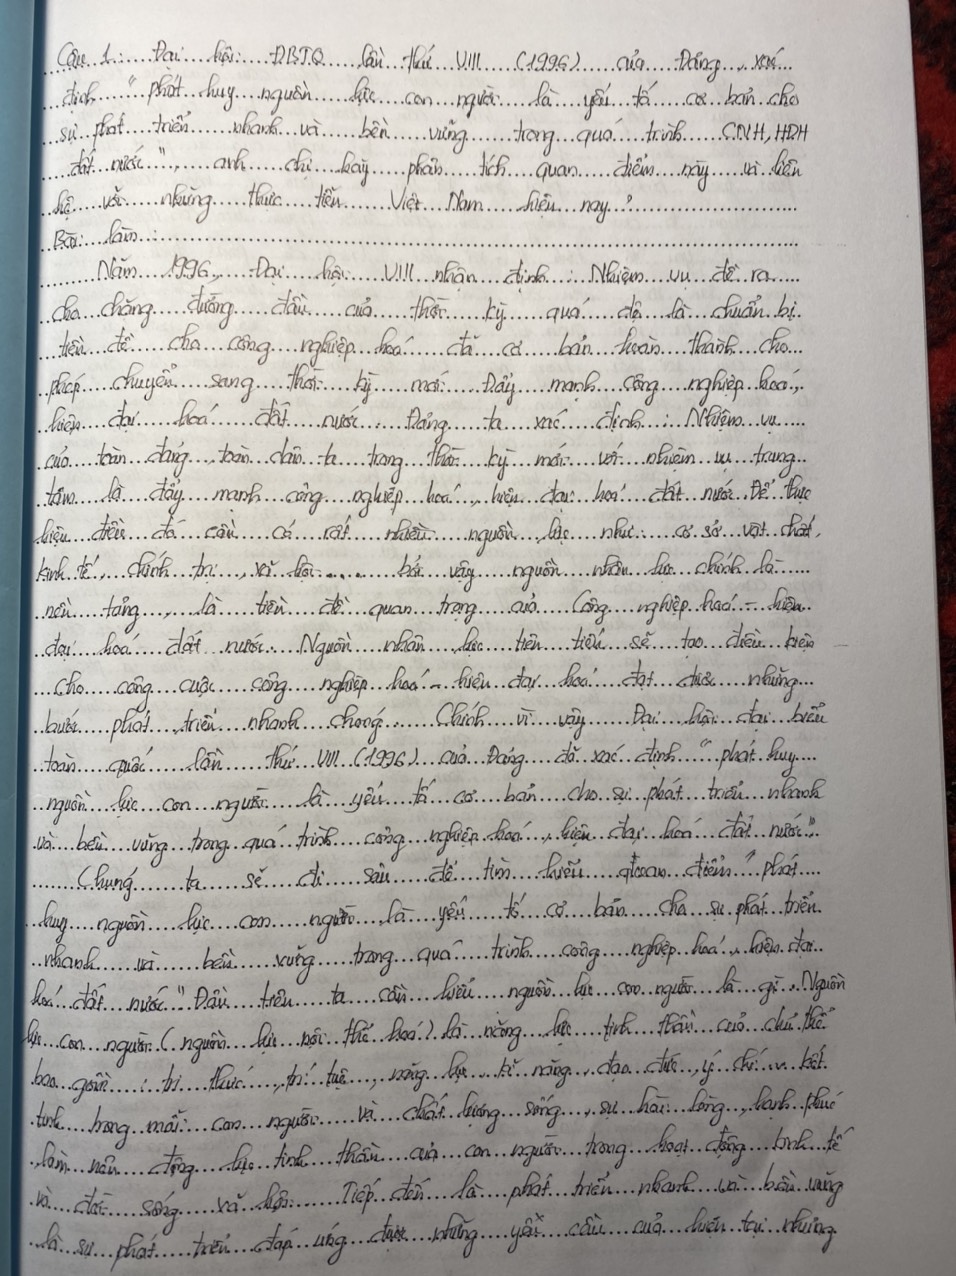 Câu 1: Đại hội ĐBTQ lần thứ VIII (1996) của Đảng, xác
định "phát huy nguồn lực con người là yếu tố cơ bản cho
sự phát triển nhanh và bền vững trong quá trình CNH, HĐH
đất nước", anh chị hãy phân tích quan điểm này và liên
hệ với những thực tiễn Việt Nam hiện nay?
Bài làm:
Năm 1996, Đại hội VIII nhận định: Nhiệm vụ đề ra
cho chặng đường đầu của thời kỳ quá độ là chuẩn bị
tiền đề cho công nghiệp hoá đã cơ bản hoàn thành cho
phép chuyển sang thời kỳ mới: Đẩy mạnh công nghiệp hoá,
hiện đại hoá đất nước. Đảng ta xác định: Nhiệm vụ
của toàn đảng, toàn dân ta trong thời kỳ mới với nhiệm vụ trung
tâm là đẩy mạnh công nghiệp hoá, hiện đại hoá đất nước. Để thực
hiện điều đó cần có rất nhiều nguồn lực như: cơ sở vật chất,
kinh tế, chính trị, xã hội... bởi vậy nguồn nhân lực chính là
nền tảng, là tiền đề quan trọng của Công nghiệp hoá - hiện
đại hoá đất nước. Nguồn nhân lực tiên tiến sẽ tạo điều kiện
cho công cuộc công nghiệp hoá - hiện đại hoá đạt được những
bước phát triển nhanh chóng. Chính vì vậy Đại hội đại biểu
toàn quốc lần thứ VIII (1996) của Đảng đã xác định "phát huy
nguồn lực con người là yếu tố cơ bản cho sự phát triển nhanh
và bền vững trong quá trình công nghiệp hoá, hiện đại hoá đất nước".
Chúng ta sẽ đi sâu để tìm hiểu quan điểm "phát
huy nguồn lực con người là yếu tố cơ bản cho sự phát triển
nhanh và bền vững trong quá trình công nghiệp hoá, hiện đại
hoá đất nước". Đầu tiên ta cần hiểu nguồn lực con người là gì. Nguồn
lực con người (nguồn lực nội thể hoá) là năng lực tinh thần của chủ thể
bao gồm: tri thức, trí tuệ, năng lực, kĩ năng, đạo đức, ý chí... kết
tinh trong mỗi con người và chất lượng sống, sự hài lòng, hạnh phúc
làm nên động lực tinh thần của con người trong hoạt động kinh tế
và đời sống xã hội. Tiếp đến là phát triển nhanh và bền vững
là sự phát triển đáp ứng được những yêu cầu của hiện tại nhưng